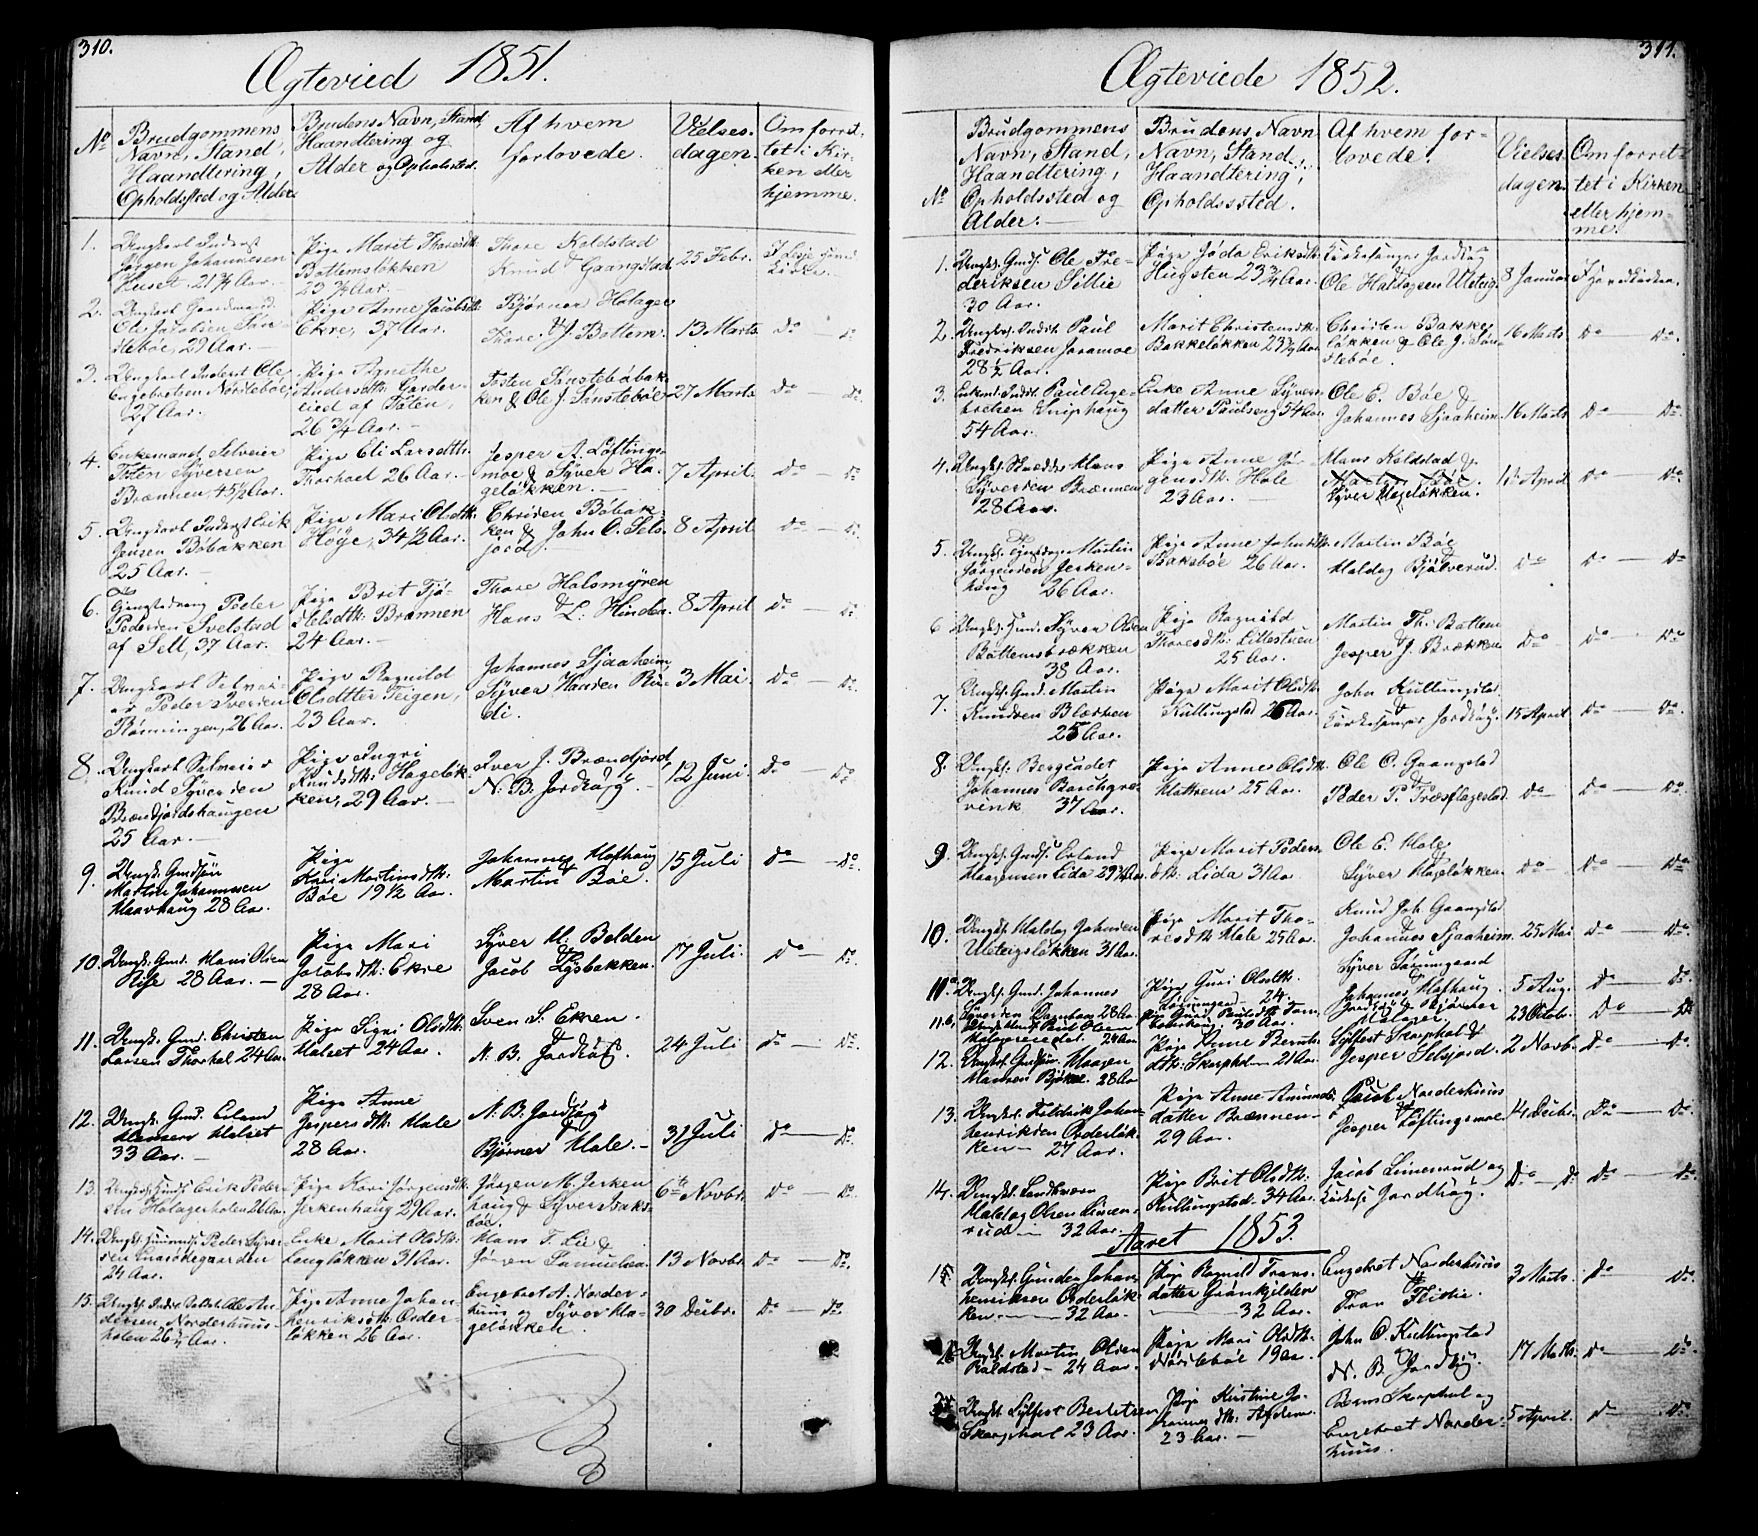 310.
Ægteviede 1851.
No
Brudgommens
Navn, Stand,
Haandtering,
Opholdssted og Alder
Brudens Navn, Stand,
Haandtering og
Alder og Opholdssted.
Af hvem
forlovede.
Vielses-
dagen.
Om forret-
tet i Kir-
ken eller
hjemme.
1. Ungkarl Inderst
Jørgen Johannesen
Huset. 21 3/4 Aar.
Pige Marit Thoresdtr.
Bottemsløkken
23 3/4 Aar.
Thore Koldstad
&
Knud Gaangstad
25 Febr.
I Lesje
Kirke.
2. Ungkarl Gaardmand
Ole Jacobsen Søn-
stebøe, 29 Aar.
Pige Anne Jacobsdtr.
Ekre, 37 Aar.
Bjørner Holager
&
Thore J. Bottem.
13 Marts
Do — Do
3. Ungkarl Inderst Ole
Engebretsen Nørstebøe,
27 Aar.
Pige Agnethe
Andersdtr.
af Toten,
26 3/4 Aar.
Tosten Sønstebøbak-
ken & Ole J. Sønstebøe
27 Marts
Do — Do
4. Enkemand Selveier
Tosten Syversen
Brænnen 45 1/2 Aar.
Pige Eli Larsdtr.
Thorhoel 26 Aar.
Jesper A. Løftings-
moe & Syver Ha-
geløkken.
7 April
Do — Do
5. Ungkarl Inderst Erik
Jensen Bøbakken
25 Aar.
Pige Mari Olsdtr.
Høye, 34 1/2 Aar.
Christen Bøbak-
ken & John O. Sels-
jord.
8 April
Do — Do
6. Do
Peder
Pedersen Svelstad
af Sell, 37 Aar.
Pige Brit Tjø-
stelsdtr. Brænnen
24 Aar.
Thore Holsmyren
&
Hans L. Hinden
8 April
Do — Do
7. Ungkarl Selvei-
er Peder Iversen
Rønningen, 26 Aar.
Pige Ragnild
Olsdtter Teigen,
23 Aar.
Johannes Sjaaheim
Syver Hansen Ru-
di.
3 Mai.
Do — Do
8. Ungkarl Selveier
Knud Syversen
Brændjordshaugen
25 Aar.
Pige Ingri
Knudsdtr. Hageløk-
ken, 29 Aar.
Iver J. Brændjord
N. B. Jordhøy.
12 Juni
Do — Do
9. Ungk. Gmdsøn
Martin Johannesen
Haavhaug 28 Aar.
Pige
Kari Martinsdtr.
Bøe 19 1/2 Aar.
Johannes Hafhaug
Martin Bøe.
15 Juli
Do — Do
10. Ungk. Gmd. Hans Olsen
Rise 28 Aar.
Pige Mari
Jacobsdtr. Ekre
28 Aar.
Syver H. Belden
Jacob Lysbakken.
17 Juli.
Do — Do
11. Ungk. Gmd. Christen
Larsen Thorhol 24 Aar
Pige Sigri Olsdtr.
Holset 24 Aar.
Sven S. Ekren
N. B. Jordhøy.
24 Juli
Do — Do
12. Ungk. Gmd. Erland
Hansen Holset
33 Aar.
Pige Anne
Jespersdtr. Hole
28 Aar.
N. B. Jordhøy
&
Bjørner Hole.
31 Juli
Do — Do
13. Ungk. Gmds. Erik Peder-
sen Holagerholen 26 Aar
Pige Kari Jørgensdtr.
Jerkenhaug 29 Aar.
Jørgen M. Jerken-
haug & Syver Baks-
bøe.
6te Novbr.
Do — Do
14. Ungk. Peder Syver-
sen Enarshøegaarden
24 Aar.
Enke Marit Olsdtr.
Langløkken 31 Aar.
Hans T. Lie &
Jørgen Samuelsen
13 Novbr.
Do — Do
15. Ungk. Ole An-
dersen Norderhuus-
holen 26 1/2 Aar.
Pige Anne Johan-
henriksdtr. Order-
løkken 26 Aar.
Engebret A. Norder-
huus og Syver Ha-
geløkken.
30 Decbr.
Do — Do
311.
Ægteviede 1852.
No
Brudgommens
Navn, Stand,
Haandtering,
Opholdssted og
Alder.
Brudens Navn
Navn, Stand,
Haandtering,
Opholdssted.
Af hvem for-
lovede.
Vielses-
dagen.
Omforret-
tet i Kirken
eller hjem-
me.
1. Ungk. Gmds. Ole Fre-
deriksen Sillie
30 Aar.
Pige Jøda Eriksdtr.
Hugsten 23 3/4 Aar.
Kirkesanger Jordhøy
Ole Haldogsen Ulateig
8 Januar
I Hovedkirken.
2. Ungk. Inderst Paul
Fredriksen Joramoe
28 1/2 Aar.
Marit Christensdtr.
Bakkeløkken 23 3/4 Aar.
Christen Bakke-
løkken & Ole J. Søn-
stebøe.
16 Marts
Do — Do
3. Enkem. Inderst Paul Enge-
bretsen Sniphaug
54 Aar.
Enke Anne Syvers-
datter Paulseng 54 Aar.
Ole E. Bøe &
Johannes Sjaaheim.
16 Marts
Do — Do
4. Ungk. Skrædder Hans
Syversen Brænnen
28 Aar.
Pige Anne Jør-
gensdtr. Hole
23 Aar.
Hans Koldstad &
Martin Bøe.
Syver Hageløkken.
15 April
Do — Do
5. Ungk. Martin
Jørgensen Jerken-
haug 26 Aar.
Pige Anne Johnsdtr.
Baksbøe 26 Aar.
Martin Bøe
&
Haldog Bjølverud.
Do
Do — Do
6 Ungk. Syver Olsen
Bottemsbrækken
38 Aar.
Pige Ragnild
Thoresdtr. Lillestuen
25 Aar.
Martin Th. Bottem
&
Jesper J. Brækken
Do
Do — Do
7. Ungk. Gmd. Martin
Knudsen Blæsterhoen
25 Aar.
Pige Marit Olsdtr.
Kullungstad 26 Aar.
John Kullungstad
&
Kirkesanger Jordhøy.
15 April
Do — Do
8. Ungk. Bergcadet
Johannes Borchgre-
vink 37 Aar.
Pige Anne Olsdtr.
Hattrem 25 Aar.
Ole O. Gaangstad
&
Peder P. Træsflagestad
Do
Do — Do
9. Ungk. Gmds. Erland
Haagensen Lida 29 3/4 Aar
Pige Marit Peders-
dtr. Lida 31 Aar
Ole E. Hole
&
Syver Hageløkken.
Do
Do — Do
10. Ungk. Haldog Johnsen
Ulateigsløkken 31 Aar.
Pige Marit Tho-
resdtr. Hole 25 Aar.
Knud Joh. Gaangstad
&
Johannes Sjaaheim.
25 Mai
Do — Do
11.a Ungk. Gmd. Johannes
Syversen 28 Aar
Pige Guri Olsdtr.
24
Syver
&
Johannes Hafhaug.
5 Aug.
Do — Do
11.b. Ungk. Poul Olsen
Holagereiet 24 Aar
Pige Paulsdtr.
30 Aar.
Jordhøy & Bjørner
Holager.
23 Octob.
Do — Do
12. Ungk. Gmdsøn Haagen
Hansen Bjøkne. 28 Aar
Pige Anne Berndts-
dtr. Skarphol 21 Aar.
Sylfest Skarphol &
Jesper Selsjord.
2 Novb.
Do — Do
13. Ungk. Fredrik Johan-
henriksen Orderløk-
ken 27 Aar.
Pige Anne Amunds-
datter Brænnen
29 Aar.
Jacob Norderhuus
&
Jesper Løftingsmoe.
14 Decbr.
Do — Do
14. Ungk. Landhværn
Haldog Olsen Linen-
rud 32 Aar.
Pige Brit Olsdtr.
Kullungstad. 34 Aar.
Jacob Linenrud og
Kirkes. Jordhøy.
Do — Do
Do — Do
Aaret 1853.
Ungk. Gunder Johan-
henriksen Orderløk-
ken. 32 Aar.
Pige Ragnild Frans-
datter Grønkjelden
32 Aar.
Engebret Norderhuus
&
Fran Flittie.
3 Marts.
Do — Do
Ungk. Martin Olsen
Koldstad 24 Aar.
Pige Mari Olsdtr.
Nørstebøe 19 Aar.
John O Kullungstad
og
N. B. Jordhøy.
17 Marts.
Do — Do
Ungk. Sylfest Berntsen
Skarphol 23 Aar.
Pige Kirstine Jo-
hannesdtr.
23 Aar.
Bernt Skarphol og
Engebret Norder-
huus.
5 April.
Do — Do